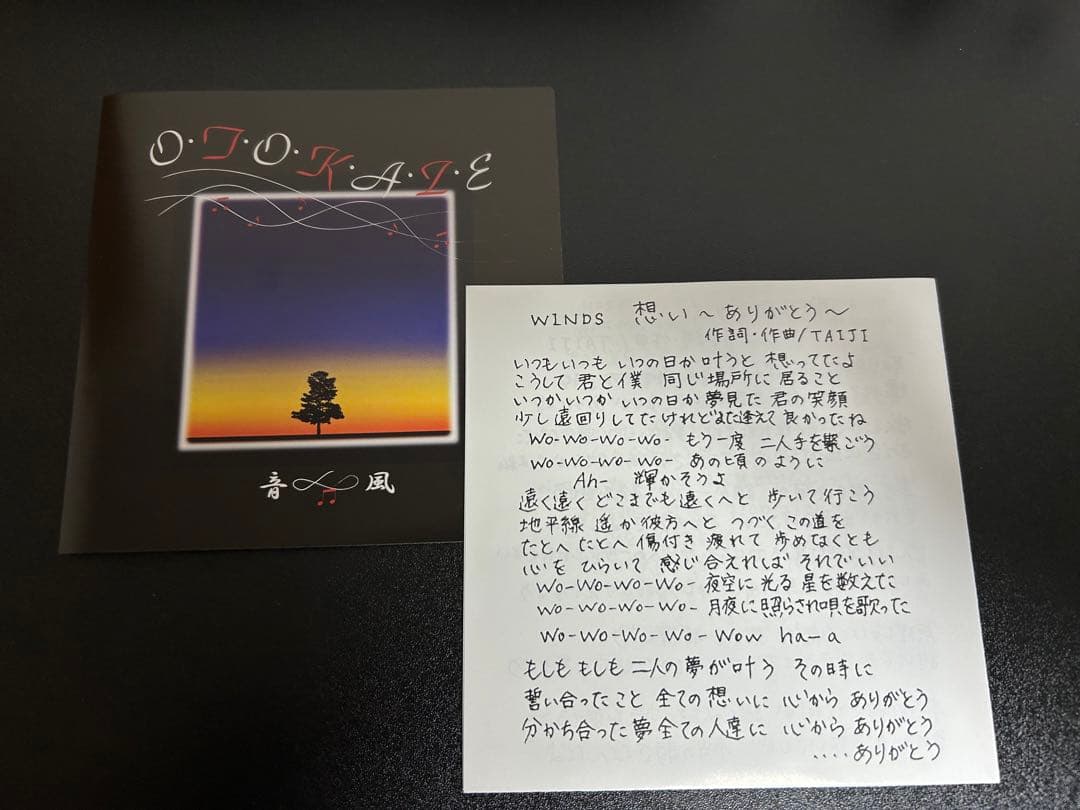 O・T・O・K・A・Z・E
音 風
WINDS 想い～ありがとう～
作詞・作曲/TAIJI
いつもいつも いつの日か叶うと 想ってたよ
こうして 君と僕 同じ場所に 居ること
いつかいつか いつの日か夢見た 君の笑顔
少し遠回りしてたけれどまた逢えて 良かったね
Wo-Wo-Wo-Wo- もう一度 二人手を繋ごう
Wo-Wo-Wo-Wo- あの頃のように
Ah- 輝かそうよ
遠く遠く どこまでも遠くへと 歩いて行こう
地平線 遥か彼方へと つづく この道を
たとへ たとへ 傷付き 疲れて 歩めなくとも
心を ひらいて 感じ合えれば それでいい
Wo-Wo-Wo-Wo- 夜空に光る 星を数えた
Wo-Wo-Wo-Wo- 月夜に照らされ唄を歌った
Wo-Wo-Wo-Wo-Wow ha-a
もしも もしも 二人の夢が叶う その時に
誓い合ったこと 全ての想いに 心から ありがとう
分かち合った夢 全ての人達に 心から ありがとう
....ありがとう